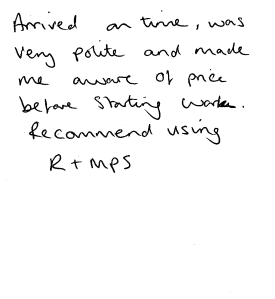 Arrived on time, was
very polite and made
me aware of price
before starting work.
Recommend using
R + MPS